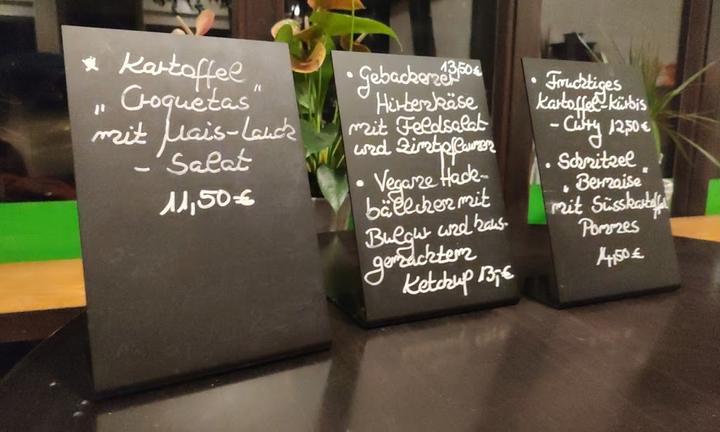 * Kartoffel
„Croquetas"
mit Mais-Lauch
- Salat
11,50€
• Gebackener 13,50€
Hirtenkäse
mit Feldsalat
und Zimtpflaumen
• Vegane Hack-
bällchen mit
Bulgur und haus-
gemachtem
Ketchup 13,-€
• Fruchtiges
Kartoffel-Kürbis
- Curry 12,50€
• Schnitzel
„Bernaise"
mit Süsskartoffel
Pommes
14,50€